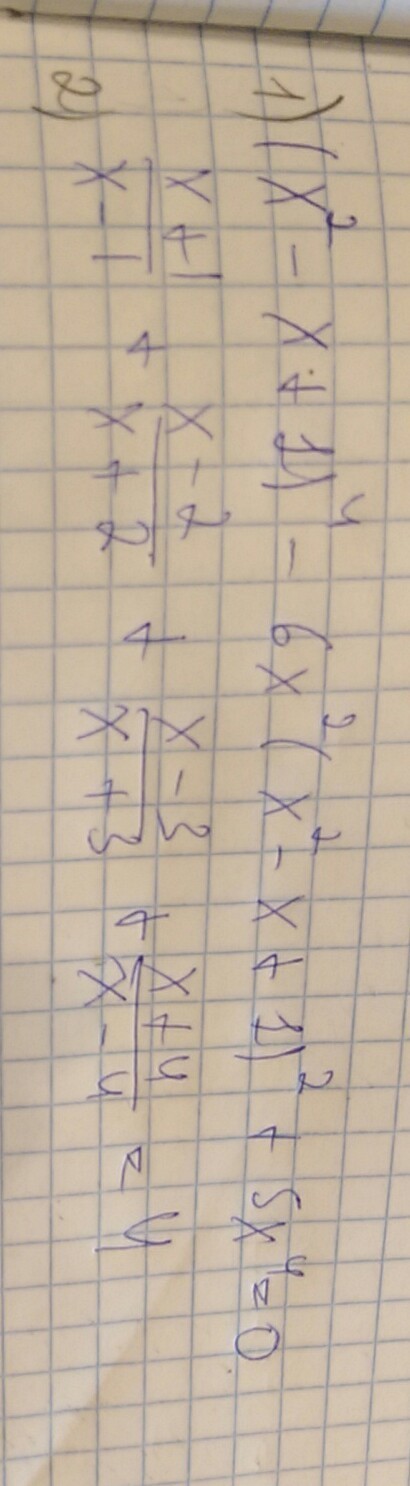 1) (x² - x + 1)⁴ - 6x²(x² - x + 1)² + 5x⁴ = 0
2) \frac{x+1}{x-1} + \frac{x-2}{x+2} + \frac{x-3}{x+3} + \frac{x+4}{x-4} = 4